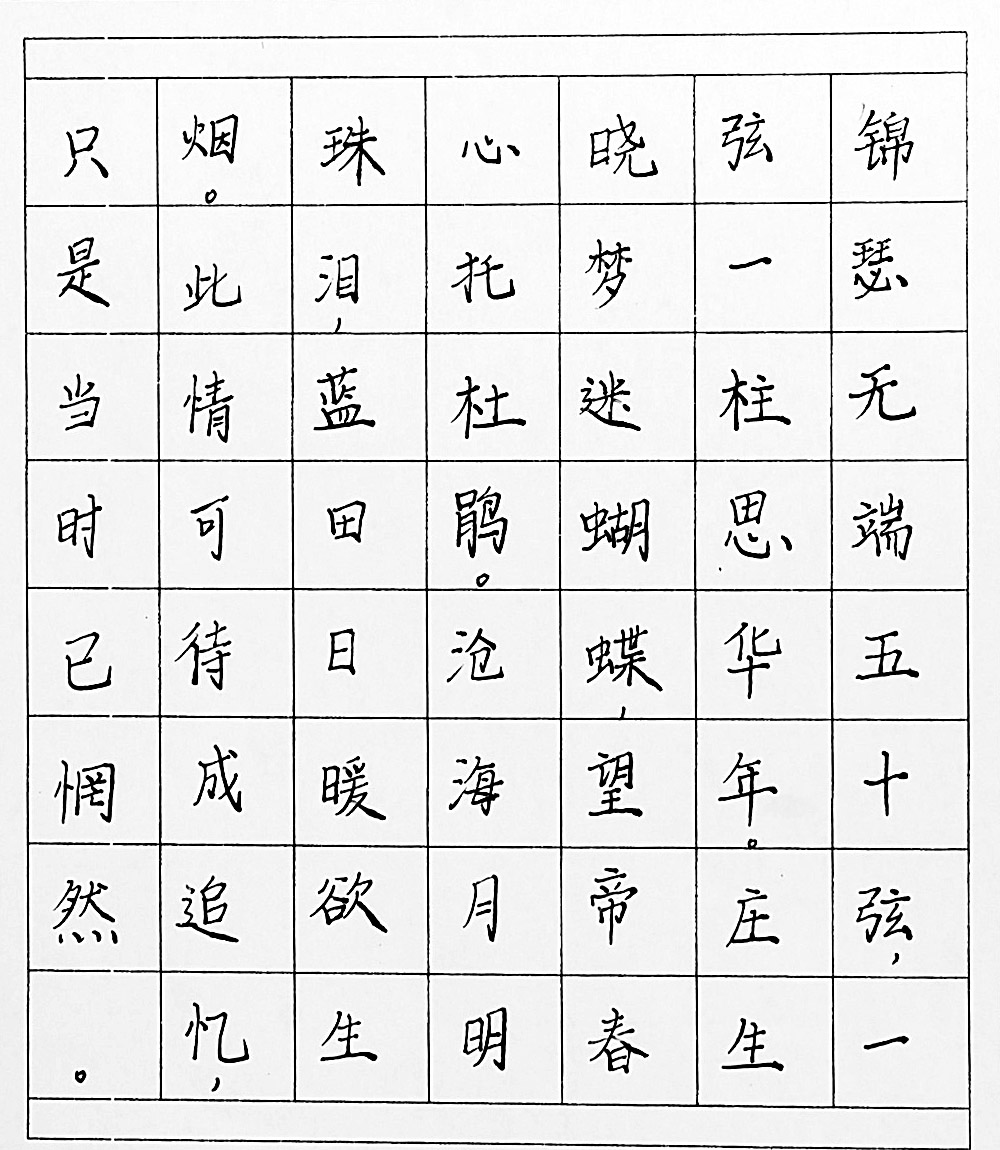 锦瑟无端五十弦,一
弦一柱思华年。庄生
晓梦迷蝴蝶,望帝春
心托杜鹃。沧海月明
珠泪,蓝田日暖欲生
烟。此情可待成追忆,
只是当时已惘然。